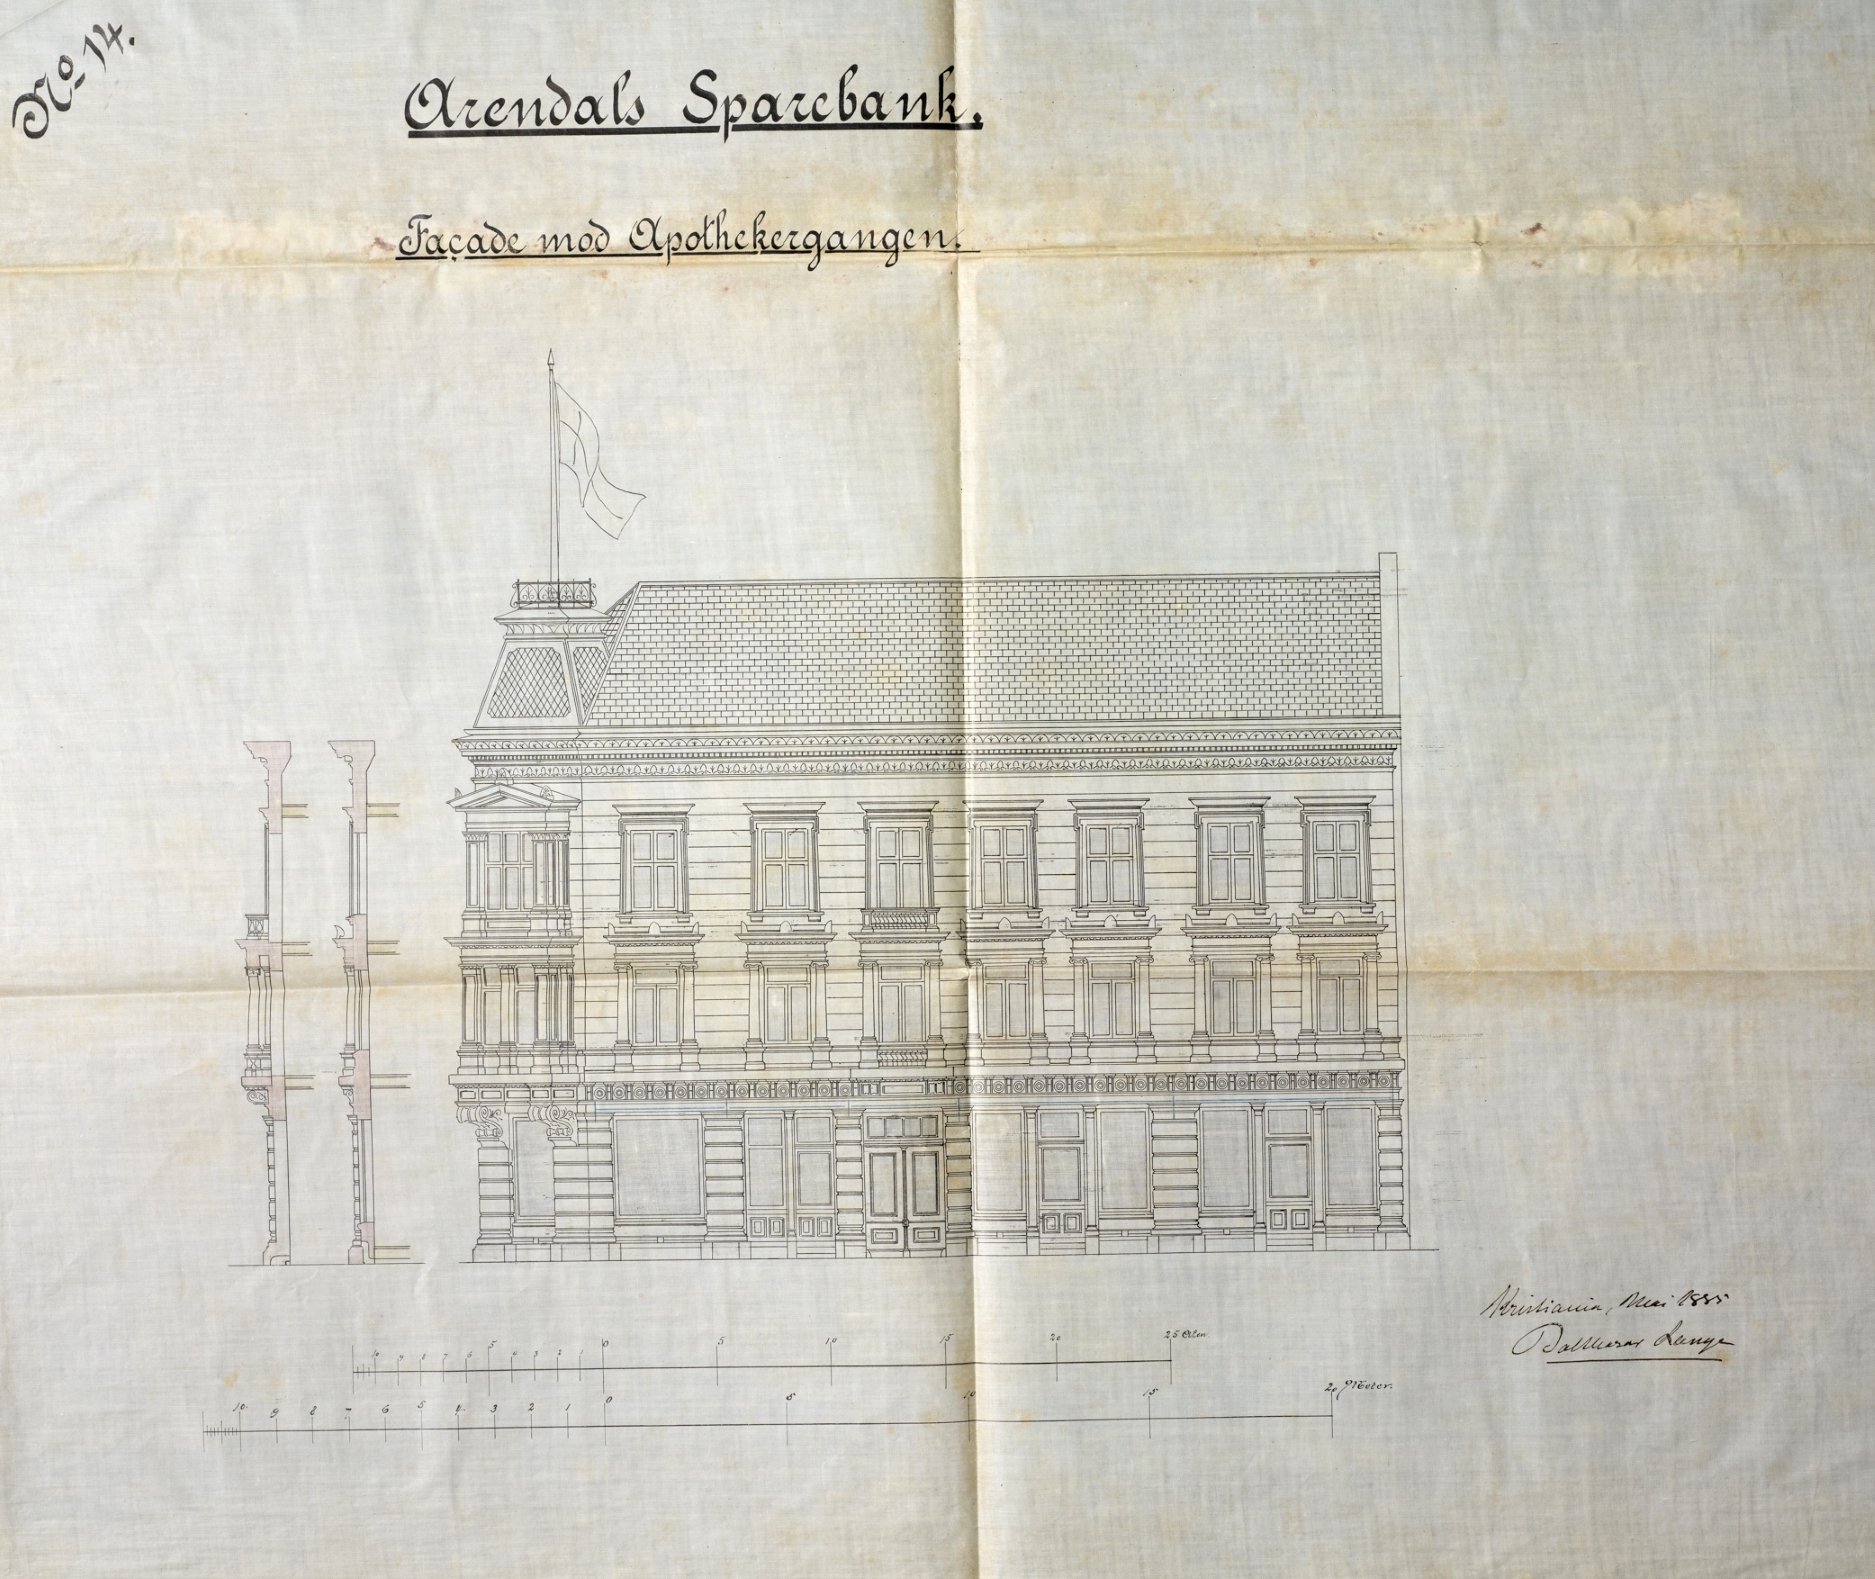 No 14.
Arendals Sparebank.
Façade mod Apothekergangen.
Kristiania, Mai 1885
Balthazar Lange
10 9 8 7 6 5 4 3 2 1 0 5 10 15 20 25 Alen.
10. 9 8 7 6 5 4. 3 2 1 0 5 10 15 20 Meter.